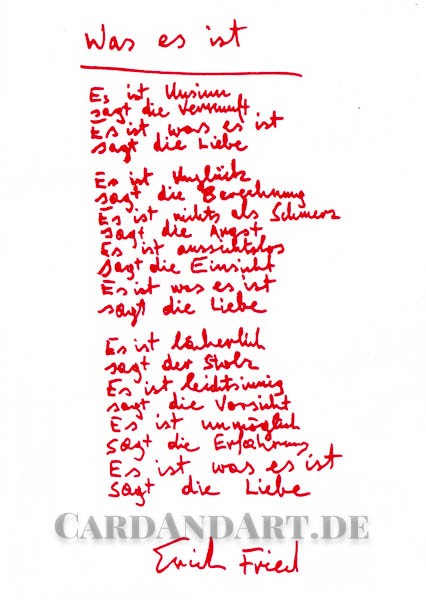 Was es ist
Es ist Unsinn
sagt die Vernunft
Es ist was es ist
sagt die Liebe
Es ist Unglück
sagt die Berechnung
Es ist nichts als Schmerz
sagt die Angst
Es ist aussichtslos
sagt die Einsicht
Es ist was es ist
sagt die Liebe
Es ist lächerlich
sagt der Stolz
Es ist leichtsinnig
sagt die Vorsicht
Es ist unmöglich
sagt die Erfahrung
Es ist was es ist
sagt die Liebe
CARDANDART.DE
Erich Fried